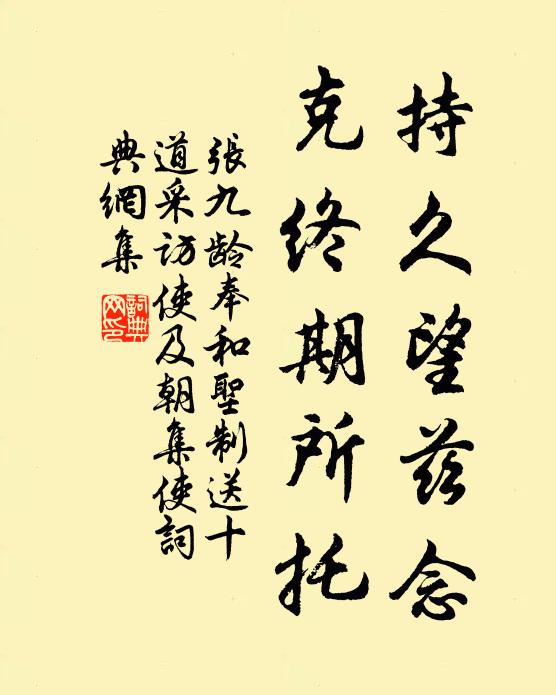 持久望兹念
克终期所托
張九龄奉和聖制送十
道采访使及朝集使詞
典網集
詞典网印